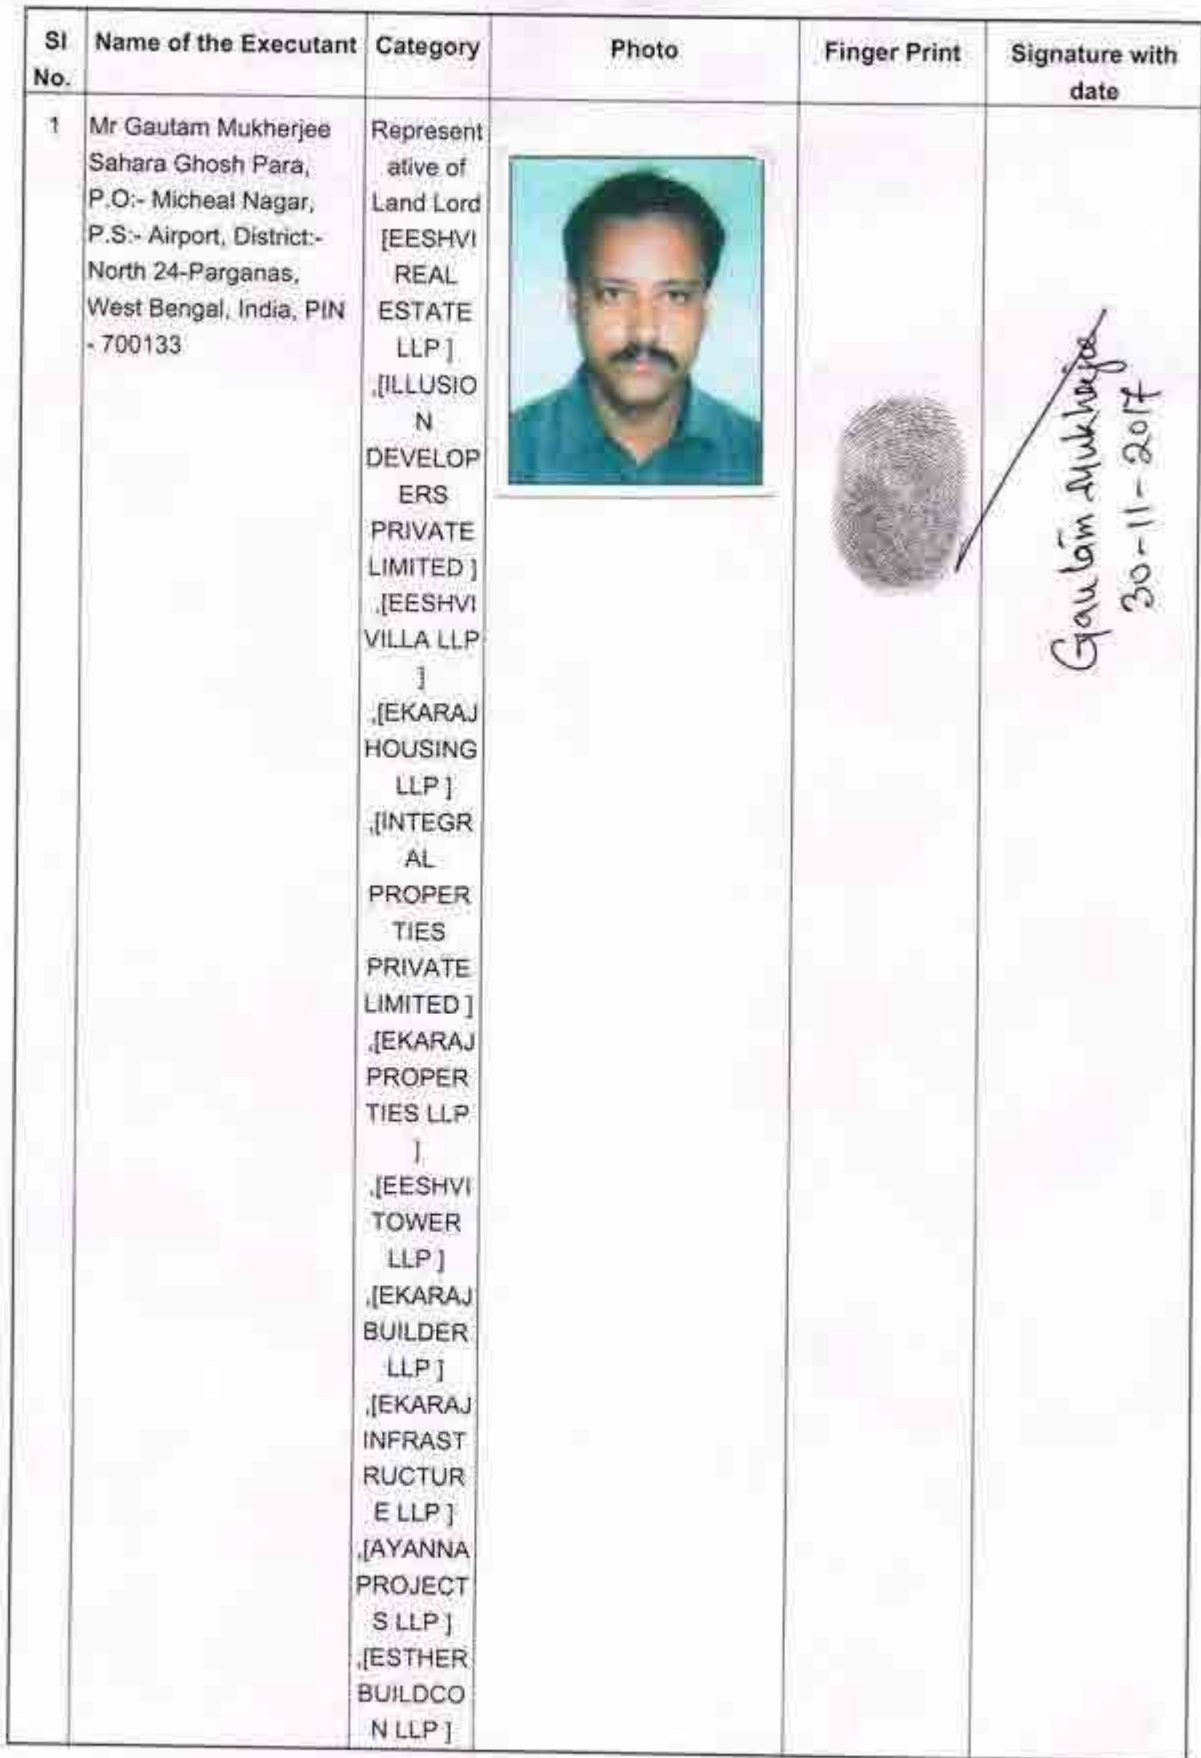 Sl No.
Name of the Executant
Category
Photo
Finger Print
Signature with date
1
Mr Gautam Mukherjee
Sahara Ghosh Para,
P.O:- Micheal Nagar,
P.S:- Airport, District:-
North 24-Parganas,
West Bengal, India, PIN
- 700133
Represent
ative of
Land Lord
[EESHVI
REAL
ESTATE
LLP ]
,[ILLUSIO
N
DEVELOP
ERS
PRIVATE
LIMITED ]
,[EESHVI
VILLA LLP
]
,[EKARAJ
HOUSING
LLP ]
,[INTEGR
AL
PROPER
TIES
PRIVATE
LIMITED ]
,[EKARAJ
PROPER
TIES LLP
]
,[EESHVI
TOWER
LLP ]
,[EKARAJ
BUILDER
LLP ]
,[EKARAJ
INFRAST
RUCTUR
E LLP ]
,[AYANNA
PROJECT
S LLP ]
,[ESTHER
BUILDCO
N LLP ]
Gautam Mukherjee
30-11-2017